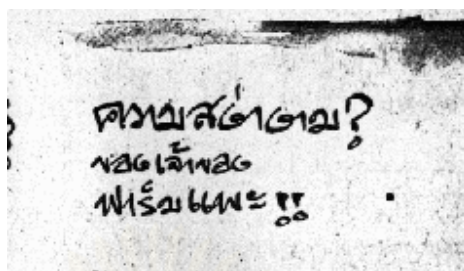 ความสง่างาม?
ของเจ้าของ
ฟาร์มแพะ!!